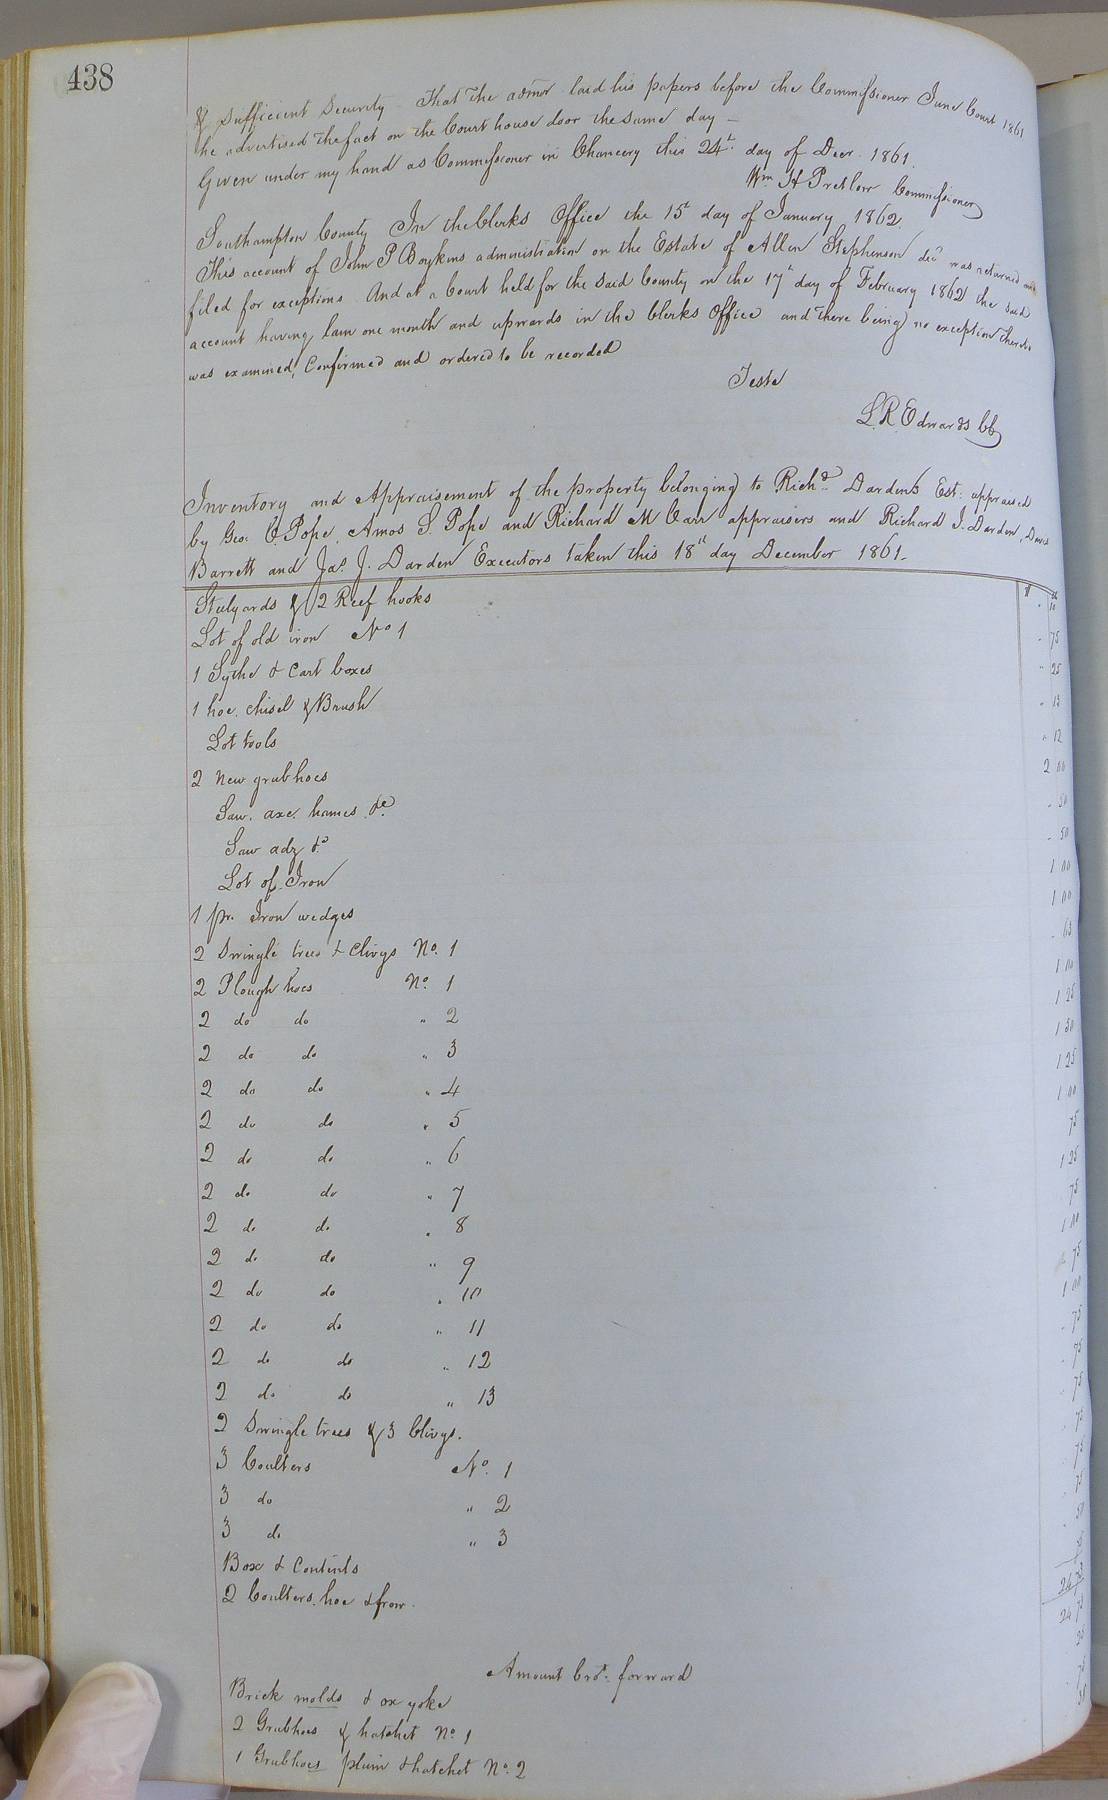 438
& Sufficient Security That the admor laid his papers before the Commissioner June Court 1861
he advertised the fact on the Court house door the same day —
Given under my hand as Commissioner in Chancery this 24th day of Decr. 1861.
Wm H Pretlow Commissioner
Southampton County In the Clerks Office the 15th day of January 1862.
This account of John P Boykins administration on the Estate of Allen Stephenson decd was returned and
filed for exceptions. And at a Court held for the said County on the 17th day of February 1862 the said
account having lain one month and upwards in the Clerks Office and there being no exception thereto
was examined, Confirmed and ordered to be recorded
Teste
L. R. Edwards CC
Inventory and Appraisement of the property belonging to Richd Dardens Est: appraised
by Geo: Pope, Amos S. Pope and Richard M Carr appraisers and Richard J. Darden, David
Barrett and Jas. J. Darden Executors taken this 18th day December 1861.
Steelyards & 2 Reef hooks " 10
Lot of old iron No 1 " 75
1 Sythe & Cart boxes " 25
1 hoe, chisel & Brush " 13
Lot tools " 12
2 New grubhoes 2 00
Saw, axe, hames &c " 50
Saw adz &c " 50
Lot of Iron 1 00
1 pr. Iron wedges 1 00
2 Swingle trees & Clivys No. 1 " 63
2 Plough hoes No. 1 1 00
2 do do " 2 1 25
2 do do " 3 1 50
2 do do " 4 1 25
2 do do " 5 1 00
2 do do " 6 75
2 do do " 7 1 25
2 do do " 8 75
2 do do " 9 1 00
2 do do " 10 75
2 do do " 11 1 00
2 do do " 12 75
2 do do " 13 75
2 Swingle trees & 3 Clivys. 75
3 Coulters No. 1 75
3 do " 2 75
3 do " 3 75
Box & Contents 50
2 Coulters, hoe & frow.
24 75
Amount brot. forward 24 75
Brick molds & ox yoke 25
2 Grubhoes & hatchet No. 1 75
1 Grubhoes plain & hatchet No. 2 50